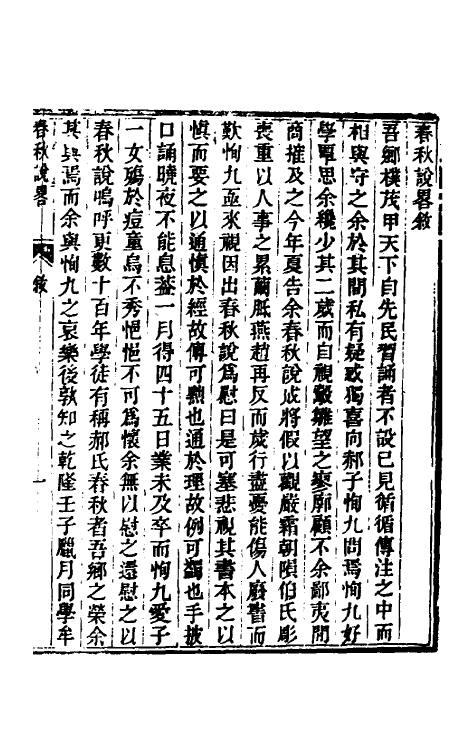 春秋說畧敘
吾鄉樸茂甲天下自先民習誦者不設已見循循傳注之中而
相與守之余於其間私有疑或獨喜向郝子恂九問焉恂九好
學覃思余穉少其二歲而自視鷇雛望之寥廓顧不余鄙夷間
商搉及之今年夏告余春秋說成將假以觀嚴霜朝隕伯氏彫
喪重以人事之累繭胝燕趙再反而歲行盡憂能傷人廢書而
歎恂九亟來視因出春秋說爲慰曰是可塞悲視其書本之以
慎而要之以通慎於經故傳可黜也通於理故例可蠲也手披
口誦曉夜不能息葢一月得四十五日業未及卒而恂九愛子
一女殤於痘童烏不秀悒悒不可爲懷余無以慰之還慰之以
春秋說嗚呼更數十百年學徒有稱郝氏春秋者吾鄉之榮余
其與焉而余與恂九之哀樂後孰知之乾隆壬子臘月同學牟
春秋說畧 敘 一